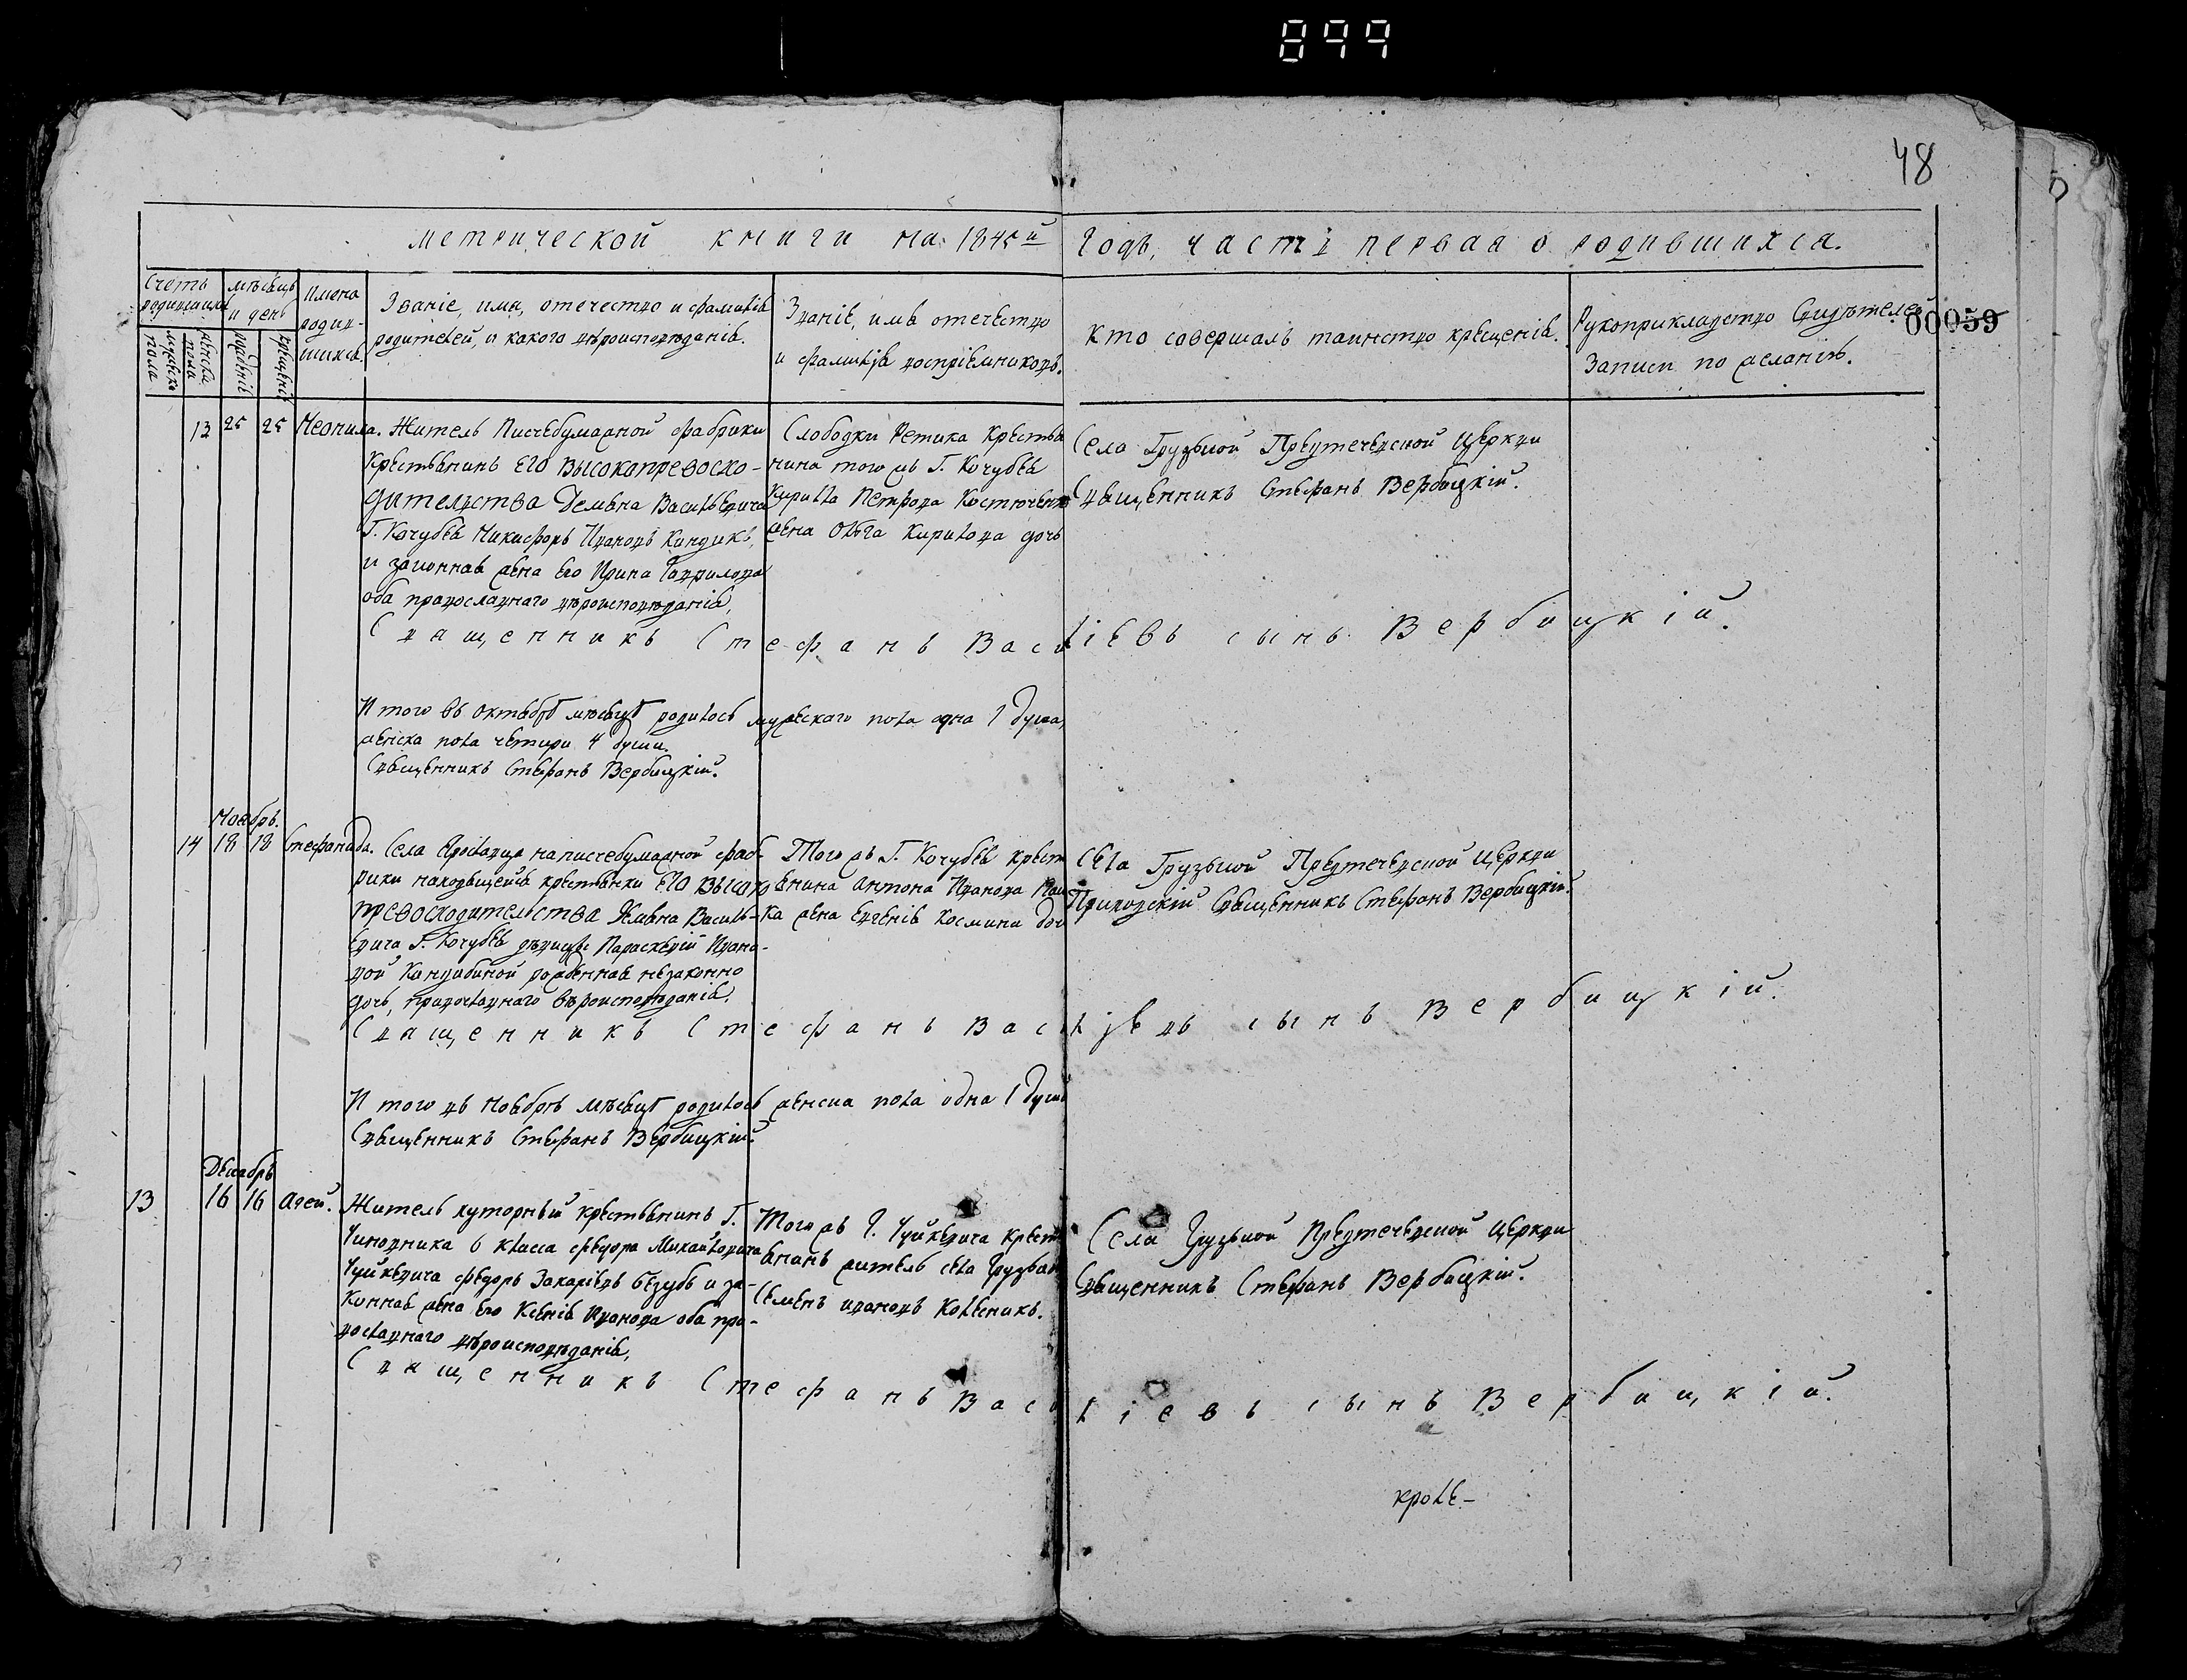 899
48
Метрической книги на 1845й годъ, часть первая о родившихся.
Счетъ родившихся
мужеска пола
женска пола
Мѣсяцъ и день
рожденія
крещенія
Имена родившихся.
Званіе, имя, отечество и фамилія
родителей, и какого вѣроисповѣданія.
Званіе, имя отечество
и фамилія воспріемниковъ.
Кто совершалъ таинство крещенія.
Рукоприкладство Свидѣтелей
записи по желанію.
00059
13 25 25 Неонила.
Житель Писчебумажной фабрики
крестьянинъ Его Высокопревосхо-
дительства Демьяна Васильевича
Г. Кочубея Никифоръ Ивановъ Киндикъ,
и законная жена его Ирина Гаврилова
оба православнаго вѣроисповѣданія,
Слободки Ретика Крестья
нина того жъ Г. Кочубея
Кирилла Петрова Костюченка
жена Ольга Кирилова дочь
Села Грузькой Предтечевской Церкви
Священникъ Стефанъ Вербицкій.
Священникъ Стефанъ Василіевъ сынъ Вербицкій.
Итого въ октябрѣ мѣсяцѣ родилось мужескаго пола одна 1 душа,
женска пола четыри 4 души.
Священникъ Стефанъ Вербицкій.
Ноябрь.
14 18 18 Стефанида.
Села Ярославца на писчебумажной фаб-
рики находящейся крестьянки Его Высоко
превосходительства Демьяна Василь-
евича Г. Кочубея дѣвицы Параскевіи Ивано-
вой рожденная незаконно
дочь, православнаго вѣроисповѣданія,
Того жъ Г. Кочубея крест
янина Антона Иванова
ка жена Евгенія Космина доч
Села Грузькой Предтечевской Церкви
Приходскій Священникъ Стефанъ Вербицкій.
Священникъ Стефанъ Василіевъ сынъ Вербицкій.
Итого въ Ноябрѣ мѣсяцѣ родилось женска пола одна 1 душа
Священникъ Стефанъ Вербицкій.
Декабрь
13 16 16 Агей.
Житель хуторный крестьянинъ Г.
Чиновника 6 класса Федора Михайловича
Чуйкевича Федоръ Захаріевъ Беззубъ и за-
конная жена его Ксенія Иванова оба пра-
вославнаго вѣроисповѣданія,
Того жъ Г. Чуйкевича крест
янинъ житель села Грузькой
Семенъ Ивановъ Колесникъ.
Села Грузькой Предтечевской Церкви
Священникъ Стефанъ Вербицкій.
Священникъ Стефанъ Василіевъ сынъ Вербицкій.
кроле-